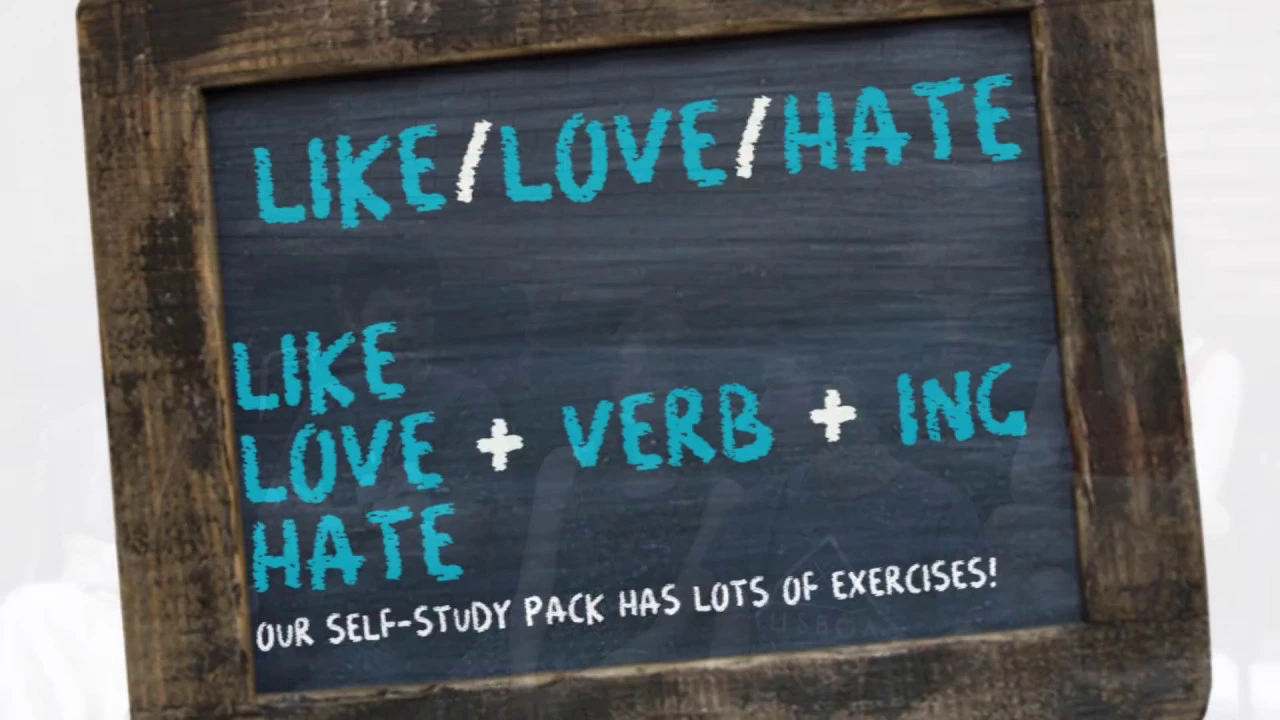 LIKE/LOVE/HATE
LIKE
LOVE + VERB + ING
HATE
OUR SELF-STUDY PACK HAS LOTS OF EXERCISES!